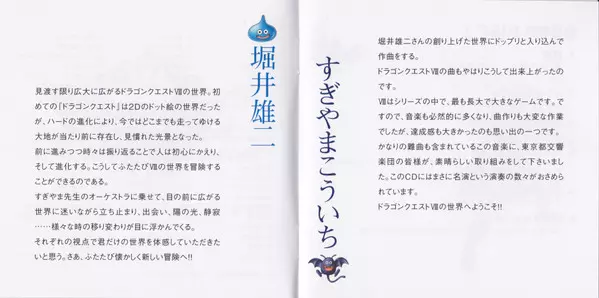 堀井雄二
見渡す限り広大に広がるドラゴンクエストⅧの世界。初
めての『ドラゴンクエスト』は2Dのドット絵の世界だった
が、ハードの進化により、今ではどこまでも走ってゆける
大地が当たり前に存在し、見慣れた光景となった。
前に進みつつ時々は振り返ることで人は初心にかえり、
そして進化する。こうしてふたたびⅧの世界を冒険する
ことができるのである。
すぎやま先生のオーケストラに乗せて、目の前に広がる
世界に迷いながら立ち止まり、出会い、陽の光、静寂
……様々な時の移り変わりが目に浮かんでくる。
それぞれの視点で君だけの世界を体感していただきた
いと思う。さあ、ふたたび懐かしく新しい冒険へ!!
すぎやまこういち
堀井雄二さんの創り上げた世界にドップリと入り込んで
作曲をする。
ドラゴンクエストⅧの曲もやはりこうして出来上がったの
です。
Ⅷはシリーズの中で、最も長大で大きなゲームです。で
すので、音楽も必然的に多くなり、曲作りも大変な作業
でしたが、達成感も大きかったのも思い出の一つです。
かなりの難曲も含まれているこの音楽に、東京都交響
楽団の皆様が、素晴らしい取り組みをして下さいまし
た。このCDにはまさに名演という演奏の数々がおさめら
れています。
ドラゴンクエストⅧの世界へようこそ!!